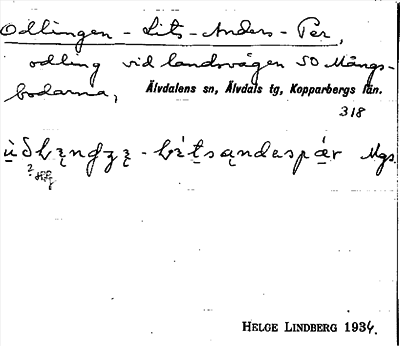 Odlingen - Lits - Anders - Per,
odling vid landsvägen SO Mångs-
bodarna, Älvdalens sn, Älvdals tg, Kopparbergs län.
318
Mgs.
HELGE LINDBERG 1934.